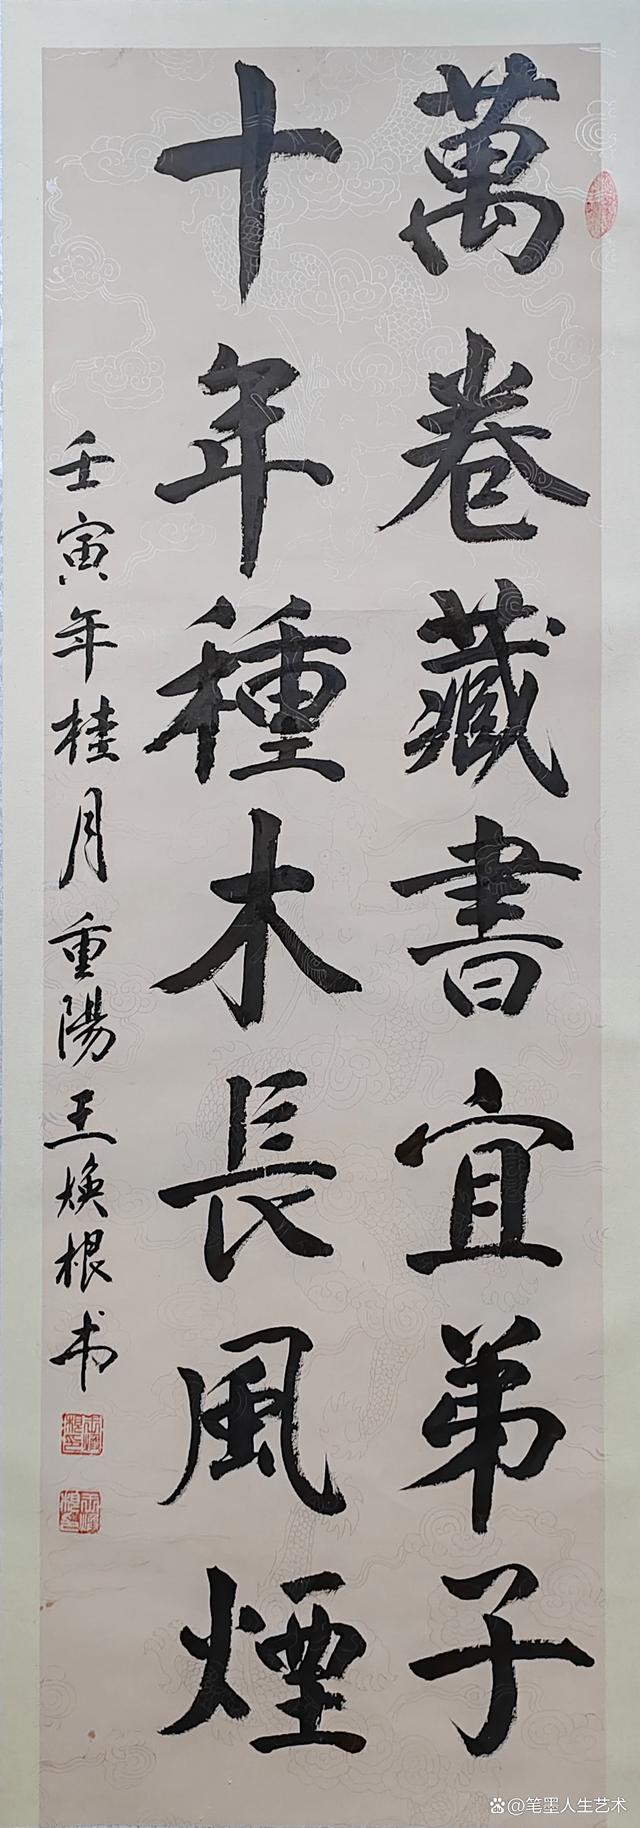 萬卷藏書宜弟子
十年種木長風煙
壬寅年桂月重陽王焕根书
@笔墨人生艺术